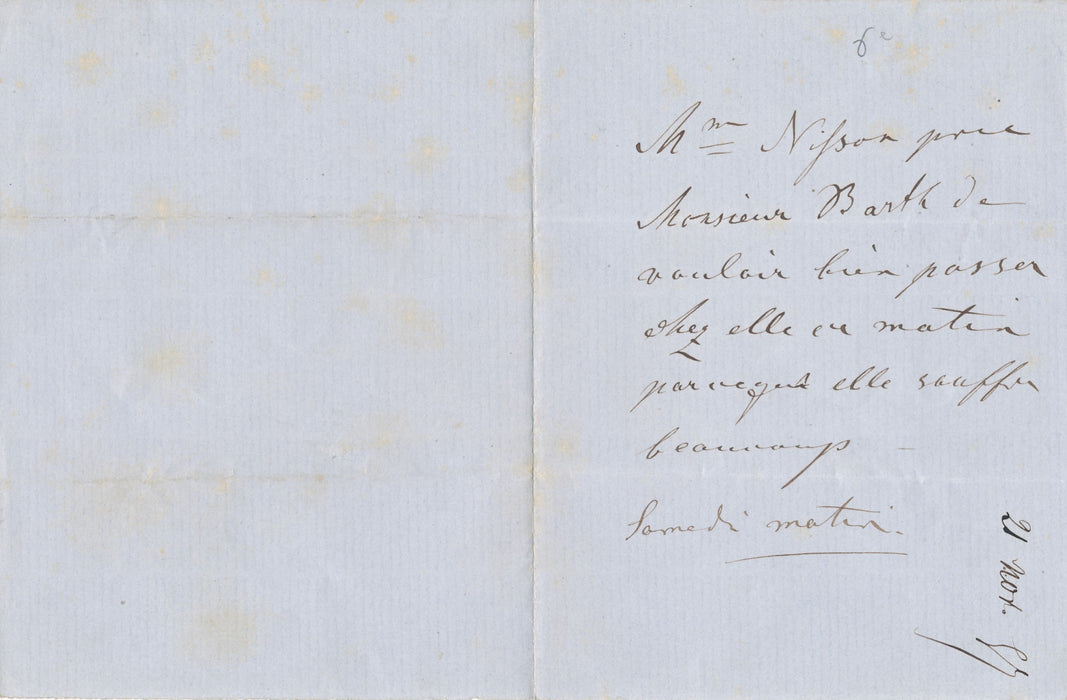 6e
Mm Nisson prie
Monsieur Barth de
vouloir bien passer
chez elle ce matin
parceque elle souffre
beaucoup –
Samedi matin.
21 Nov. 57